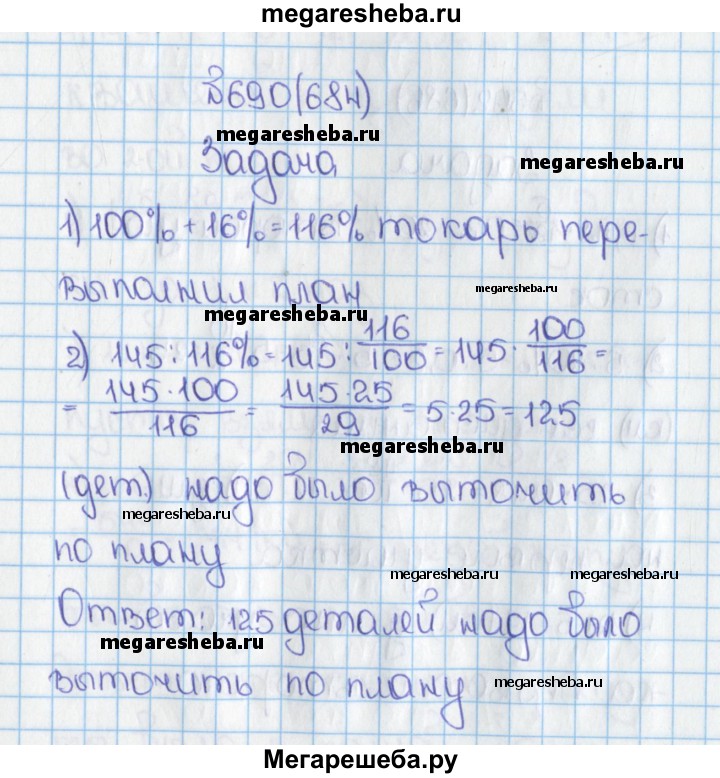 megaresheba.ru
№690(684)
megaresheba.ru
Задача
megaresheba.ru
1) 100% + 16% = 116% токарь пере-
выполнил план
megaresheba.ru
megaresheba.ru
2) 145 : 116% = 145 : 116/100 = 145 · 100/116 =
= 145·100/116 = 145·25/29 = 5·25 = 125
megaresheba.ru
(дет) надо было выточить
megaresheba.ru
megaresheba.ru
по плану
megaresheba.ru
megaresheba.ru
Ответ: 125 деталей надо было
megaresheba.ru
выточить по плану
megaresheba.ru
Мегарешеба.ру